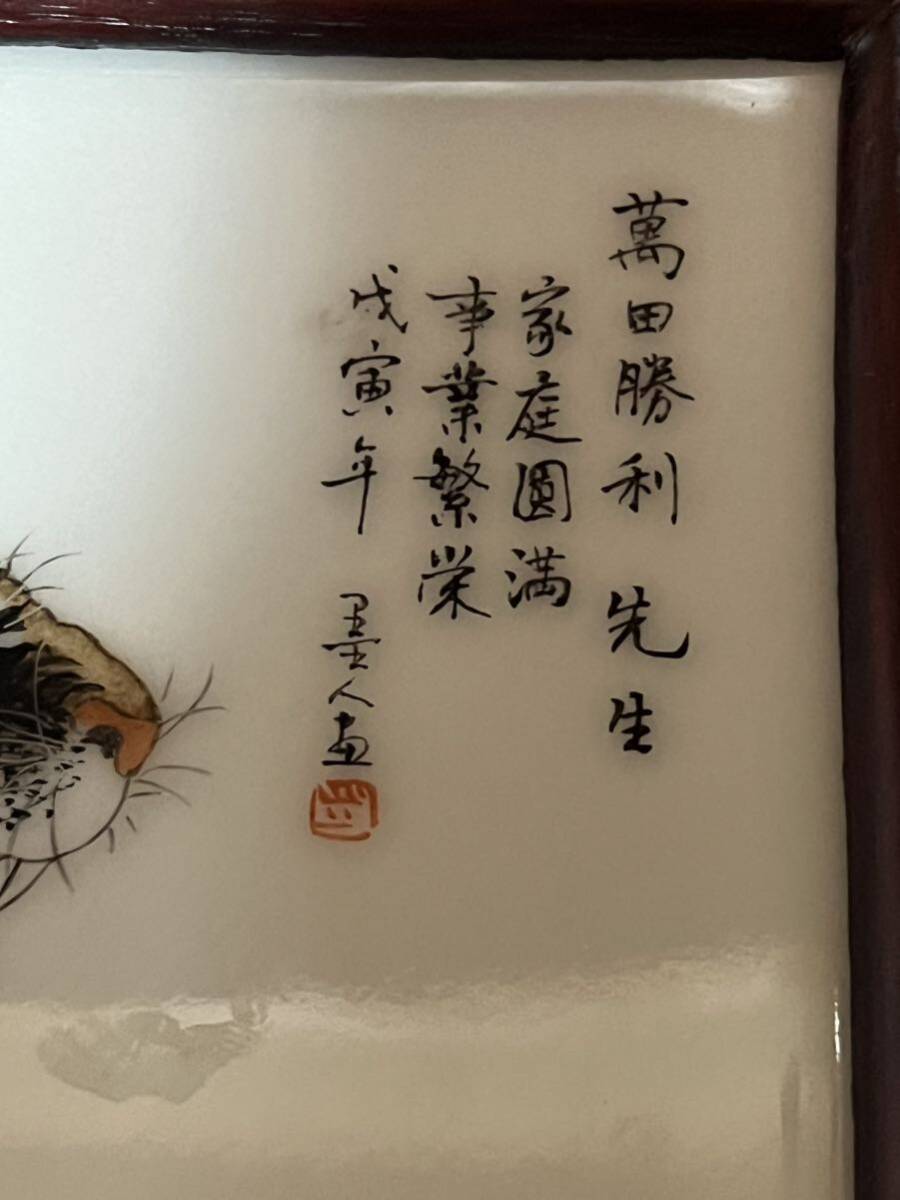 萬田勝利 先生
家庭圓満
事業繁栄
戊寅年 墨人画